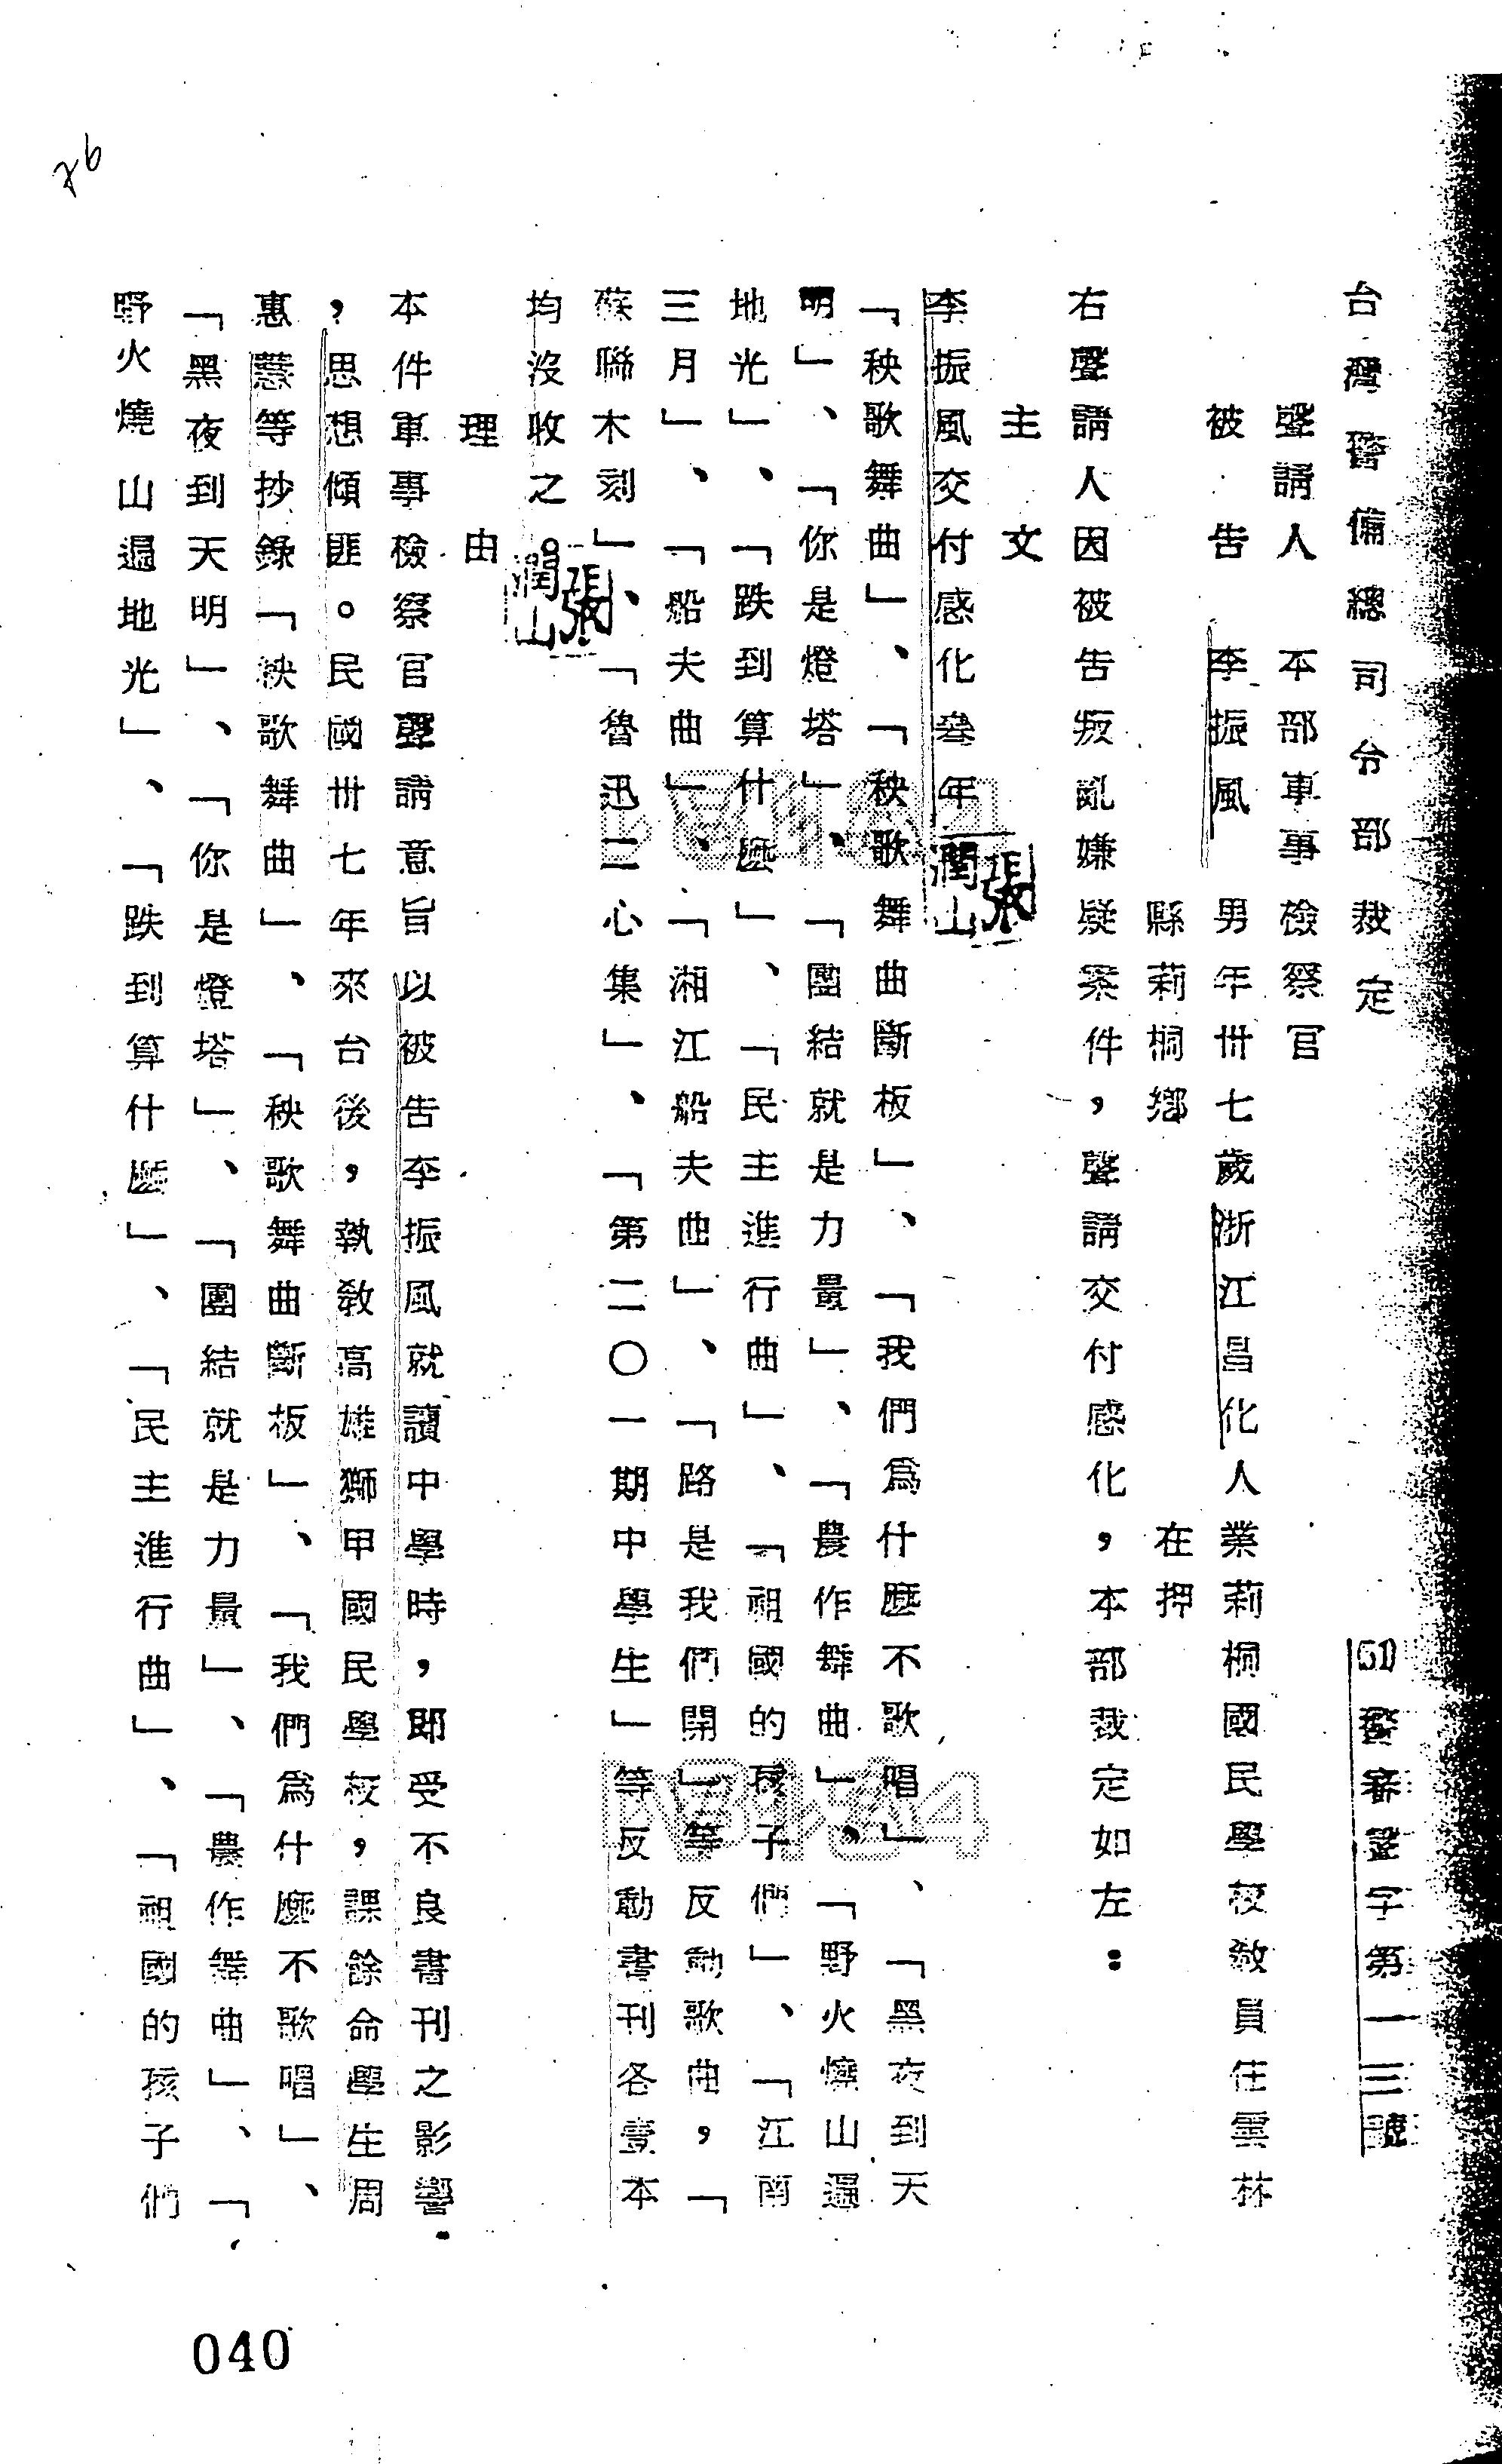 台灣警備總司令部裁定
(51)警審聲字第一三號
聲請人 本部軍事檢察官
被告 李振風 男年卅七歲浙江昌化人業莿桐國民學校教員住雲林
縣莿桐鄉 在押
右聲請人因被告叛亂嫌疑案件，聲請交付感化，本部裁定如左：
主文
李振風交付感化叁年
「秧歌舞曲」、「秧歌舞曲斷板」、「我們為什麼不歌唱」、「黑夜到天
明」、「你是燈塔」、「團結就是力量」、「農作舞曲」、「野火燒山遍
地光」、「跌到算什麼」、「民主進行曲」、「祖國的孩子們」、「江南
三月」、「船夫曲」、「湘江船夫曲」、「路是我們開」等反動歌曲，「
蘇聯木刻」、「魯迅二心集」、「第二〇一期中學生」等反動書刊各壹本
均沒收之。
張潤山
張潤山
理由
本件軍事檢察官聲請意旨以被告李振風就讀中學時，即受不良書刊之影響
，思想傾匪。民國卅七年來台後，執教高雄獅甲國民學校，課餘命學生周
惠慧等抄錄「秧歌舞曲」、「秧歌舞曲斷板」、「我們為什麼不歌唱」、
「黑夜到天明」、「你是燈塔」、「團結就是力量」、「農作舞曲」、「
野火燒山遍地光」、「跌到算什麼」、「民主進行曲」、「祖國的孩子們
76
040